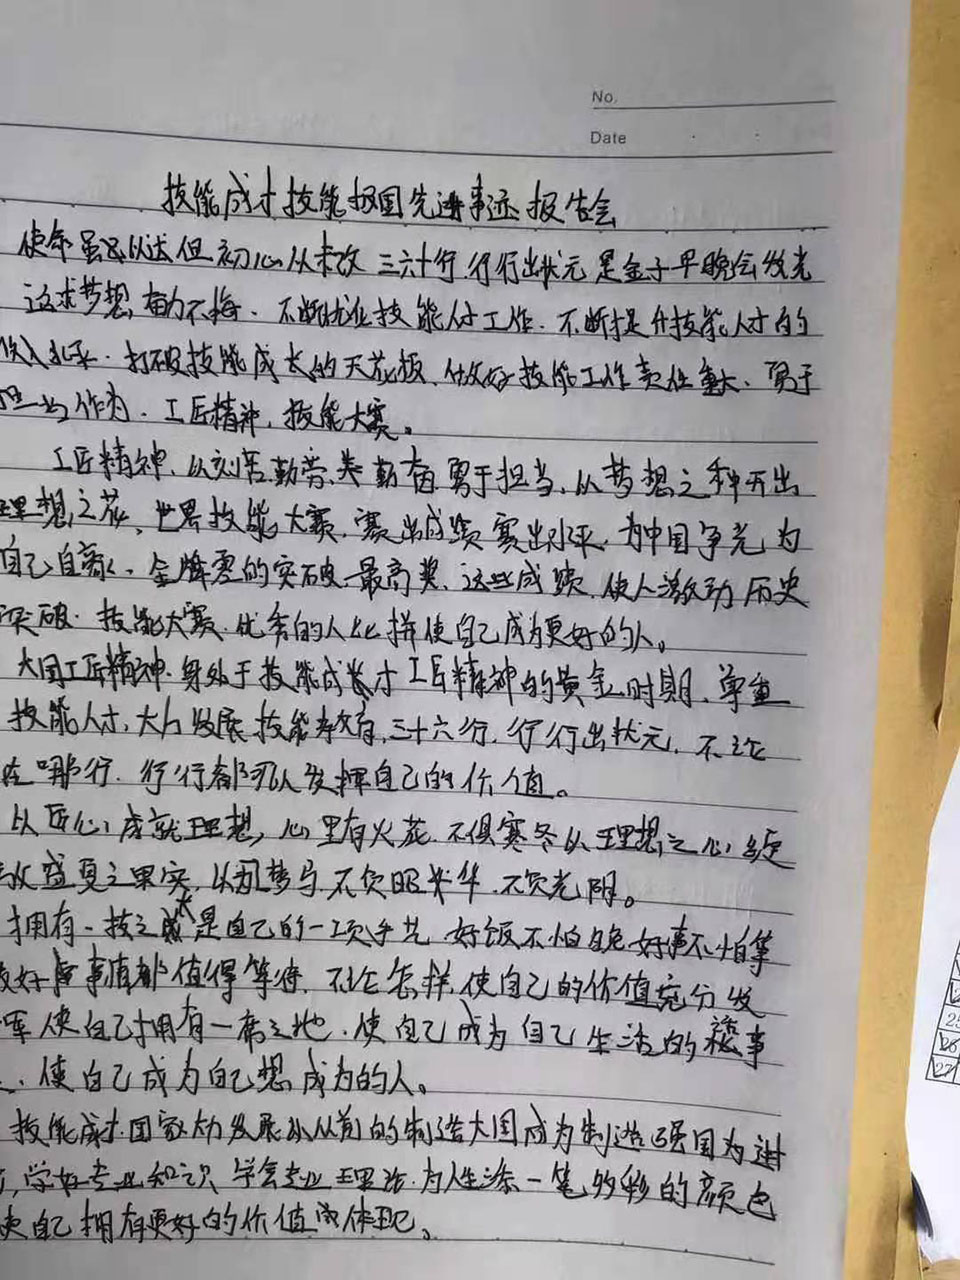 No.
Date
技能成才技能报国先进事迹报告会
使命虽已以达但初心从未改 三六十行 行行出状元 是金子早晚会发光
追求梦想 奋力不悔、不断优化技能人才工作、不断提升技能人才的
收入水平、打破技能成长的天花板、做好技能工作责任重大、勇于
担当作为、工匠精神、技能大赛。
工匠精神、以刻苦勤劳 勤奋 勇于担当、从梦想之种开出
理想之花、世界技能大赛、赛出成绩 赛出水平、为中国争光 为
自己自豪、金牌零的突破 最高奖、这些成绩、使人激动 历史
突破、技能大赛、优秀的人比拼使自己成为更好的人。
大国工匠精神、身处于技能成才工匠精神的黄金时期、尊重
技能人才、大力发展技能教育、三十六行、行行出状元、不论
在哪行、行行都可以发挥自己的价值。
从匠心成就理想、心里有火花、不惧寒冬从理想之心绽
放盛夏之果实、以梦 不负韶华、不负光阴。
拥有一技之长是自己的一项手艺 好饭不怕晚 好事不怕等
美好事情都值得等待、不论怎样、使自己的价值充分发
挥 使自己拥有一席之地、使自己成为自己生活的 事
、使自己成为自己想成为的人。
技能成才 国家大力发展 从以前的制造大国成为制造强国为进
学好专业知识 学会专业理论、为人生添一笔多彩的颜色
使自己拥有更好的价值 体现。
25
26
27